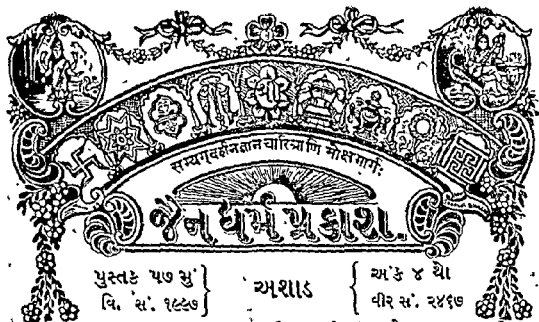 श्री
सम्यग्दर्शनज्ञानचारित्राणि मोक्षमार्गः
જૈન ધર્મ પ્રકાશ.
પુસ્તક ૫૭ મું
વિ. સં. ૧૯૯૭
અશાડ
અંક ૪ થો
વીર સં. ૨૪૬૭